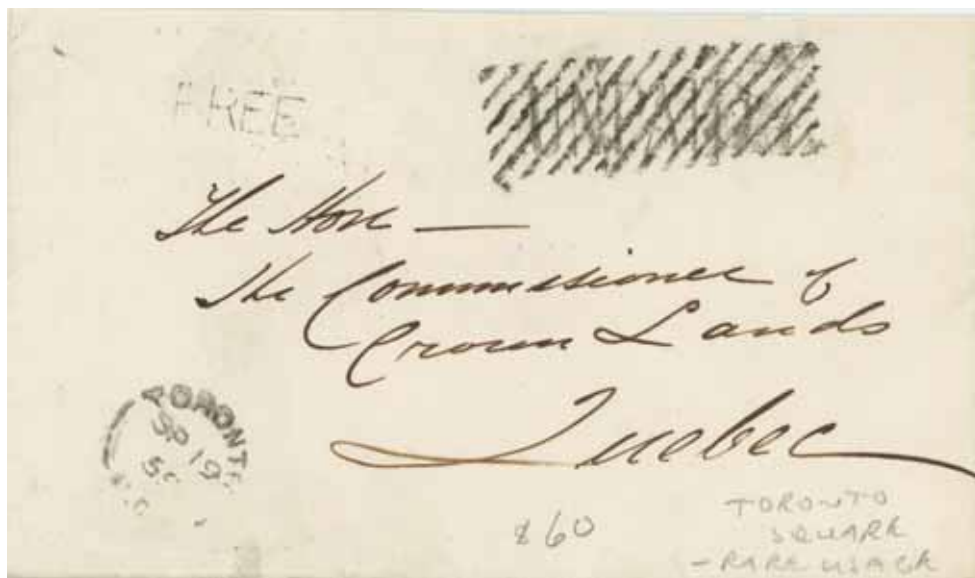 FREE
The Hon
The Commissioner of
Crown Lands
Quebec
TORONTO
SP 19
$60
TORONTO
SQUARE
- RARE USAGE